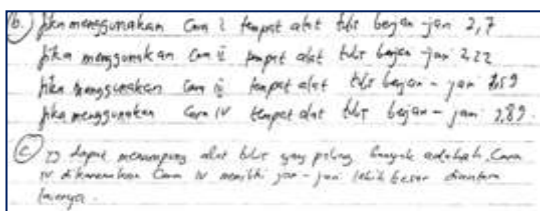 b. jika menggunakan Cara i tempat alat tulis berjari-jari 2,7
jika menggunakan Cara ii tempat alat tulis berjari-jari 2,22
jika menggunakan Cara iii tempat alat tulis berjari-jari 2,59
jika menggunakan Cara IV tempat alat tulis berjari-jari 2,89.
c. dapat menampung alat tulis yang paling banyak adalah Cara
IV dikarenakan Cara IV memiliki jari-jari lebih besar diantara
lainnya.